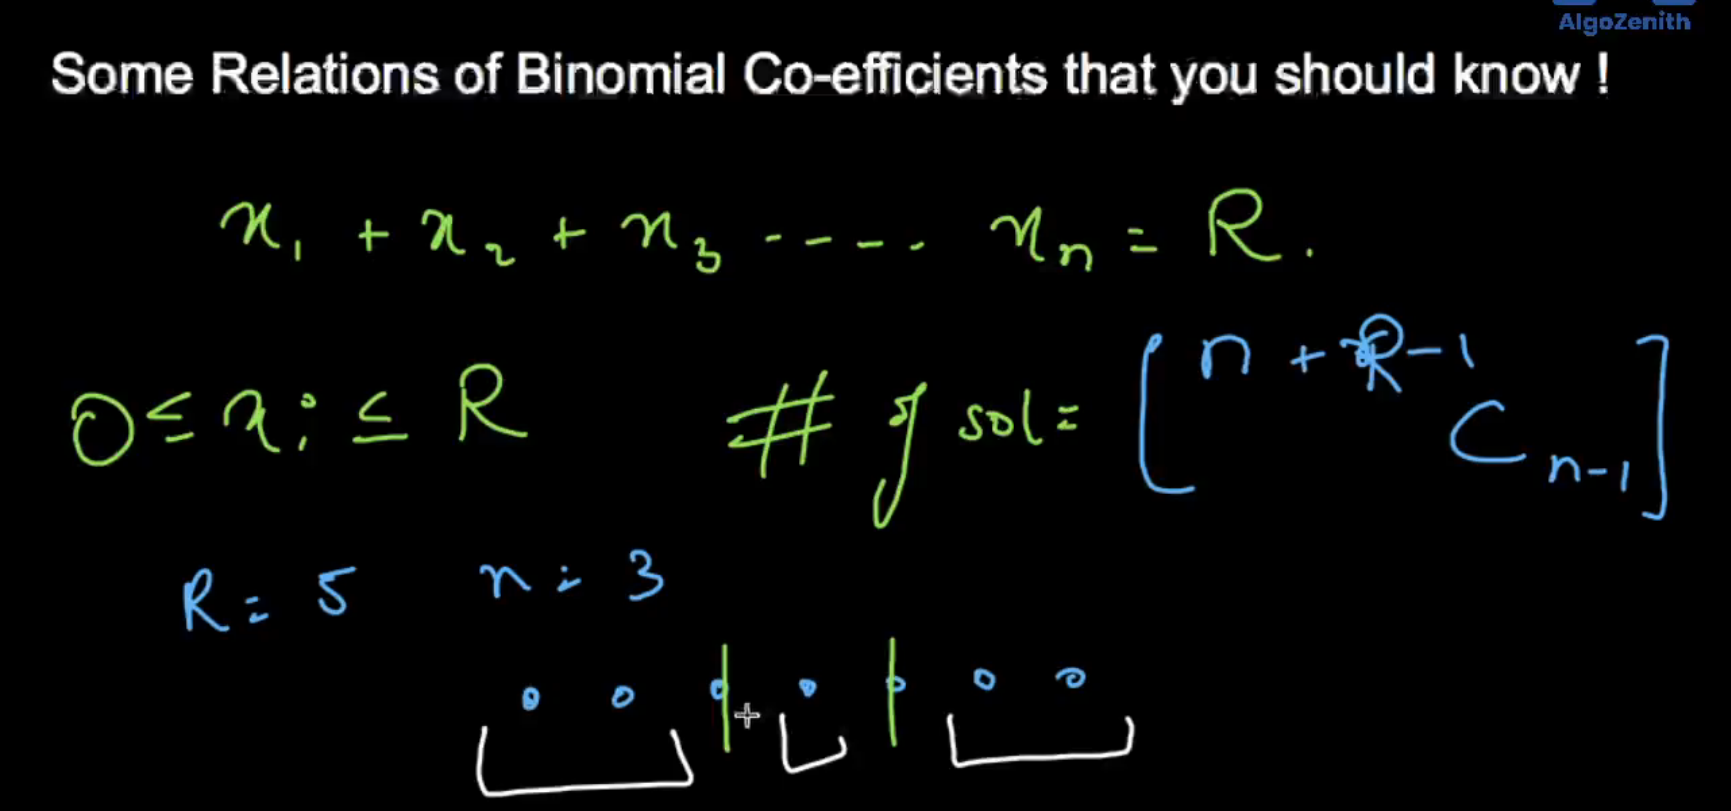 AlgoZenith
Some Relations of Binomial Co-efficients that you should know !
x₁ + x₂ + x₃ ---- xₙ = R.
0 ≤ xᵢ ≤ R # of sol = [ⁿ⁺ᴿ⁻¹Cₙ₋₁]
R = 5 n = 3